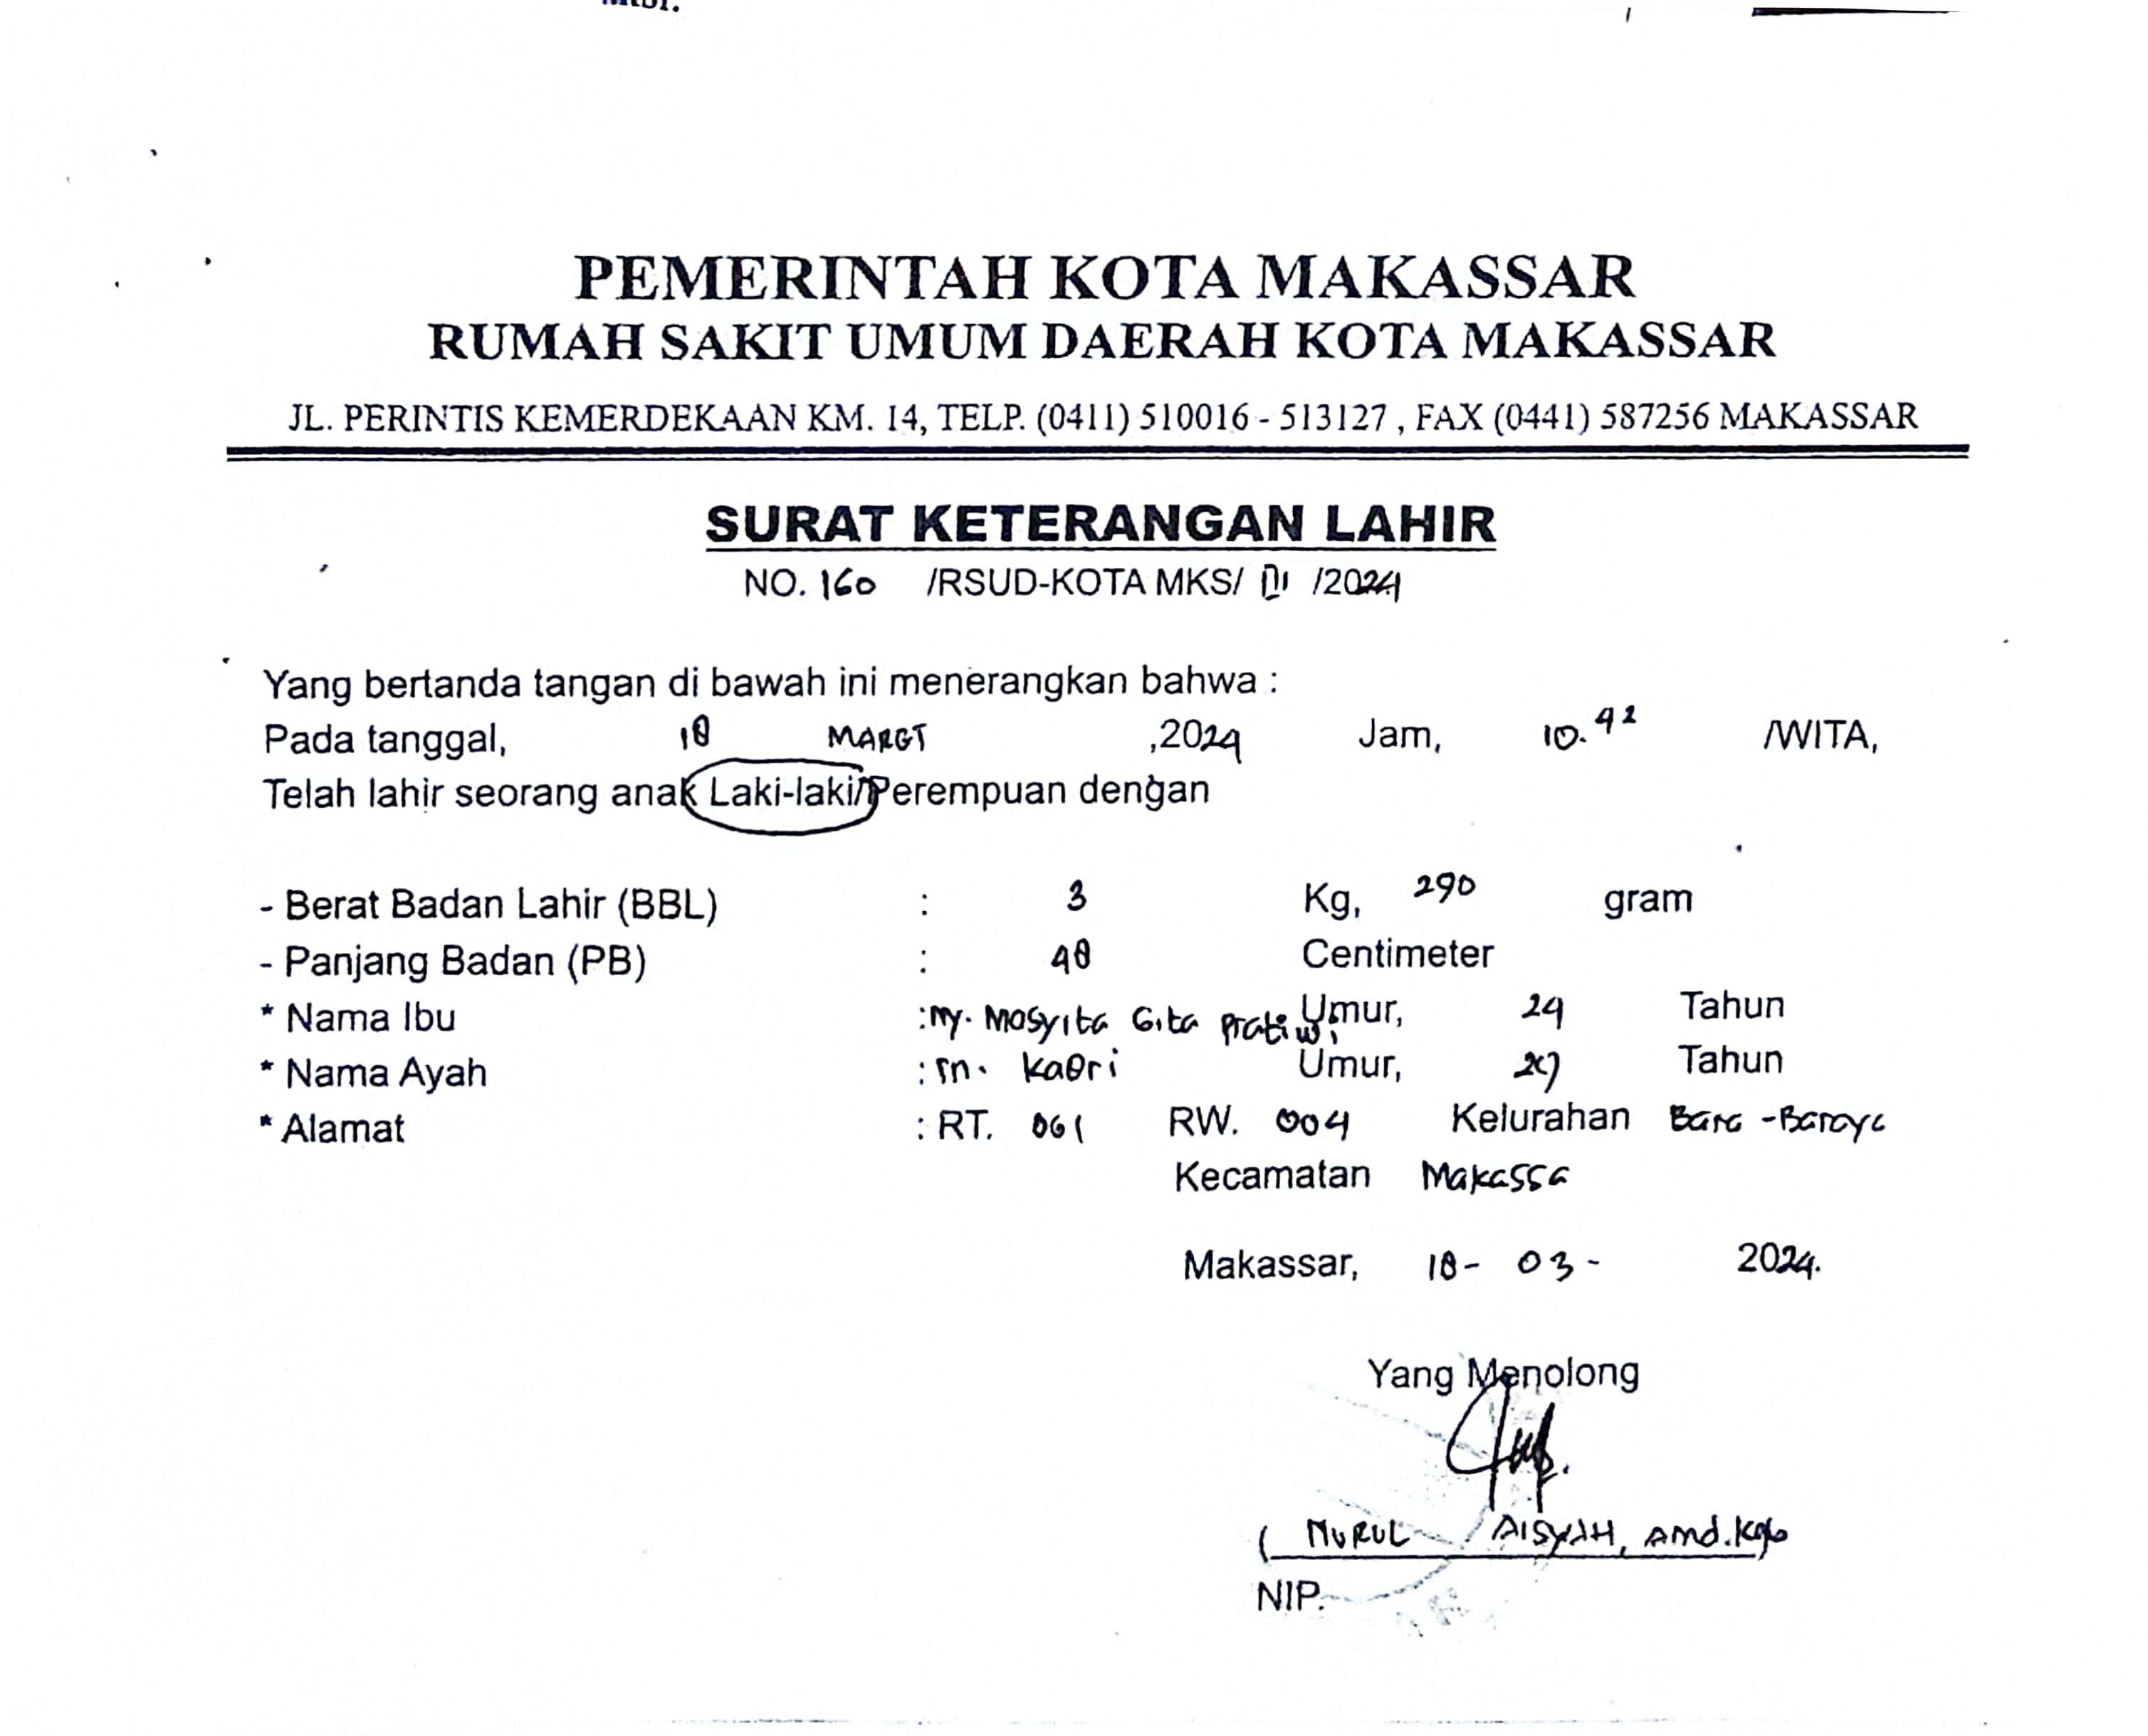 PEMERINTAH KOTA MAKASSAR
RUMAH SAKIT UMUM DAERAH KOTA MAKASSAR
JL. PERINTIS KEMERDEKAAN KM. 14, TELP. (0411) 510016 - 513127 , FAX (0441) 587256 MAKASSAR
SURAT KETERANGAN LAHIR
NO. 160 /RSUD-KOTA MKS/ III /2024
Yang bertanda tangan di bawah ini menerangkan bahwa :
Pada tanggal, 18 MARET ,2024 Jam, 10.42 /WITA,
Telah lahir seorang anak Laki-laki/Perempuan dengan
- Berat Badan Lahir (BBL) : 3 Kg, 290 gram
- Panjang Badan (PB) : 48 Centimeter
* Nama Ibu : Ny. Masyita Gita Pratiwi Umur, 24 Tahun
* Nama Ayah : Tn. Umur, 27 Tahun
* Alamat : RT. 001 RW. 004 Kelurahan Bara-Baraya
Kecamatan Makassa
Makassar, 18 - 03 - 2024.
Yang Menolong
( NURUL AISYAH, Amd.Keb
NIP.